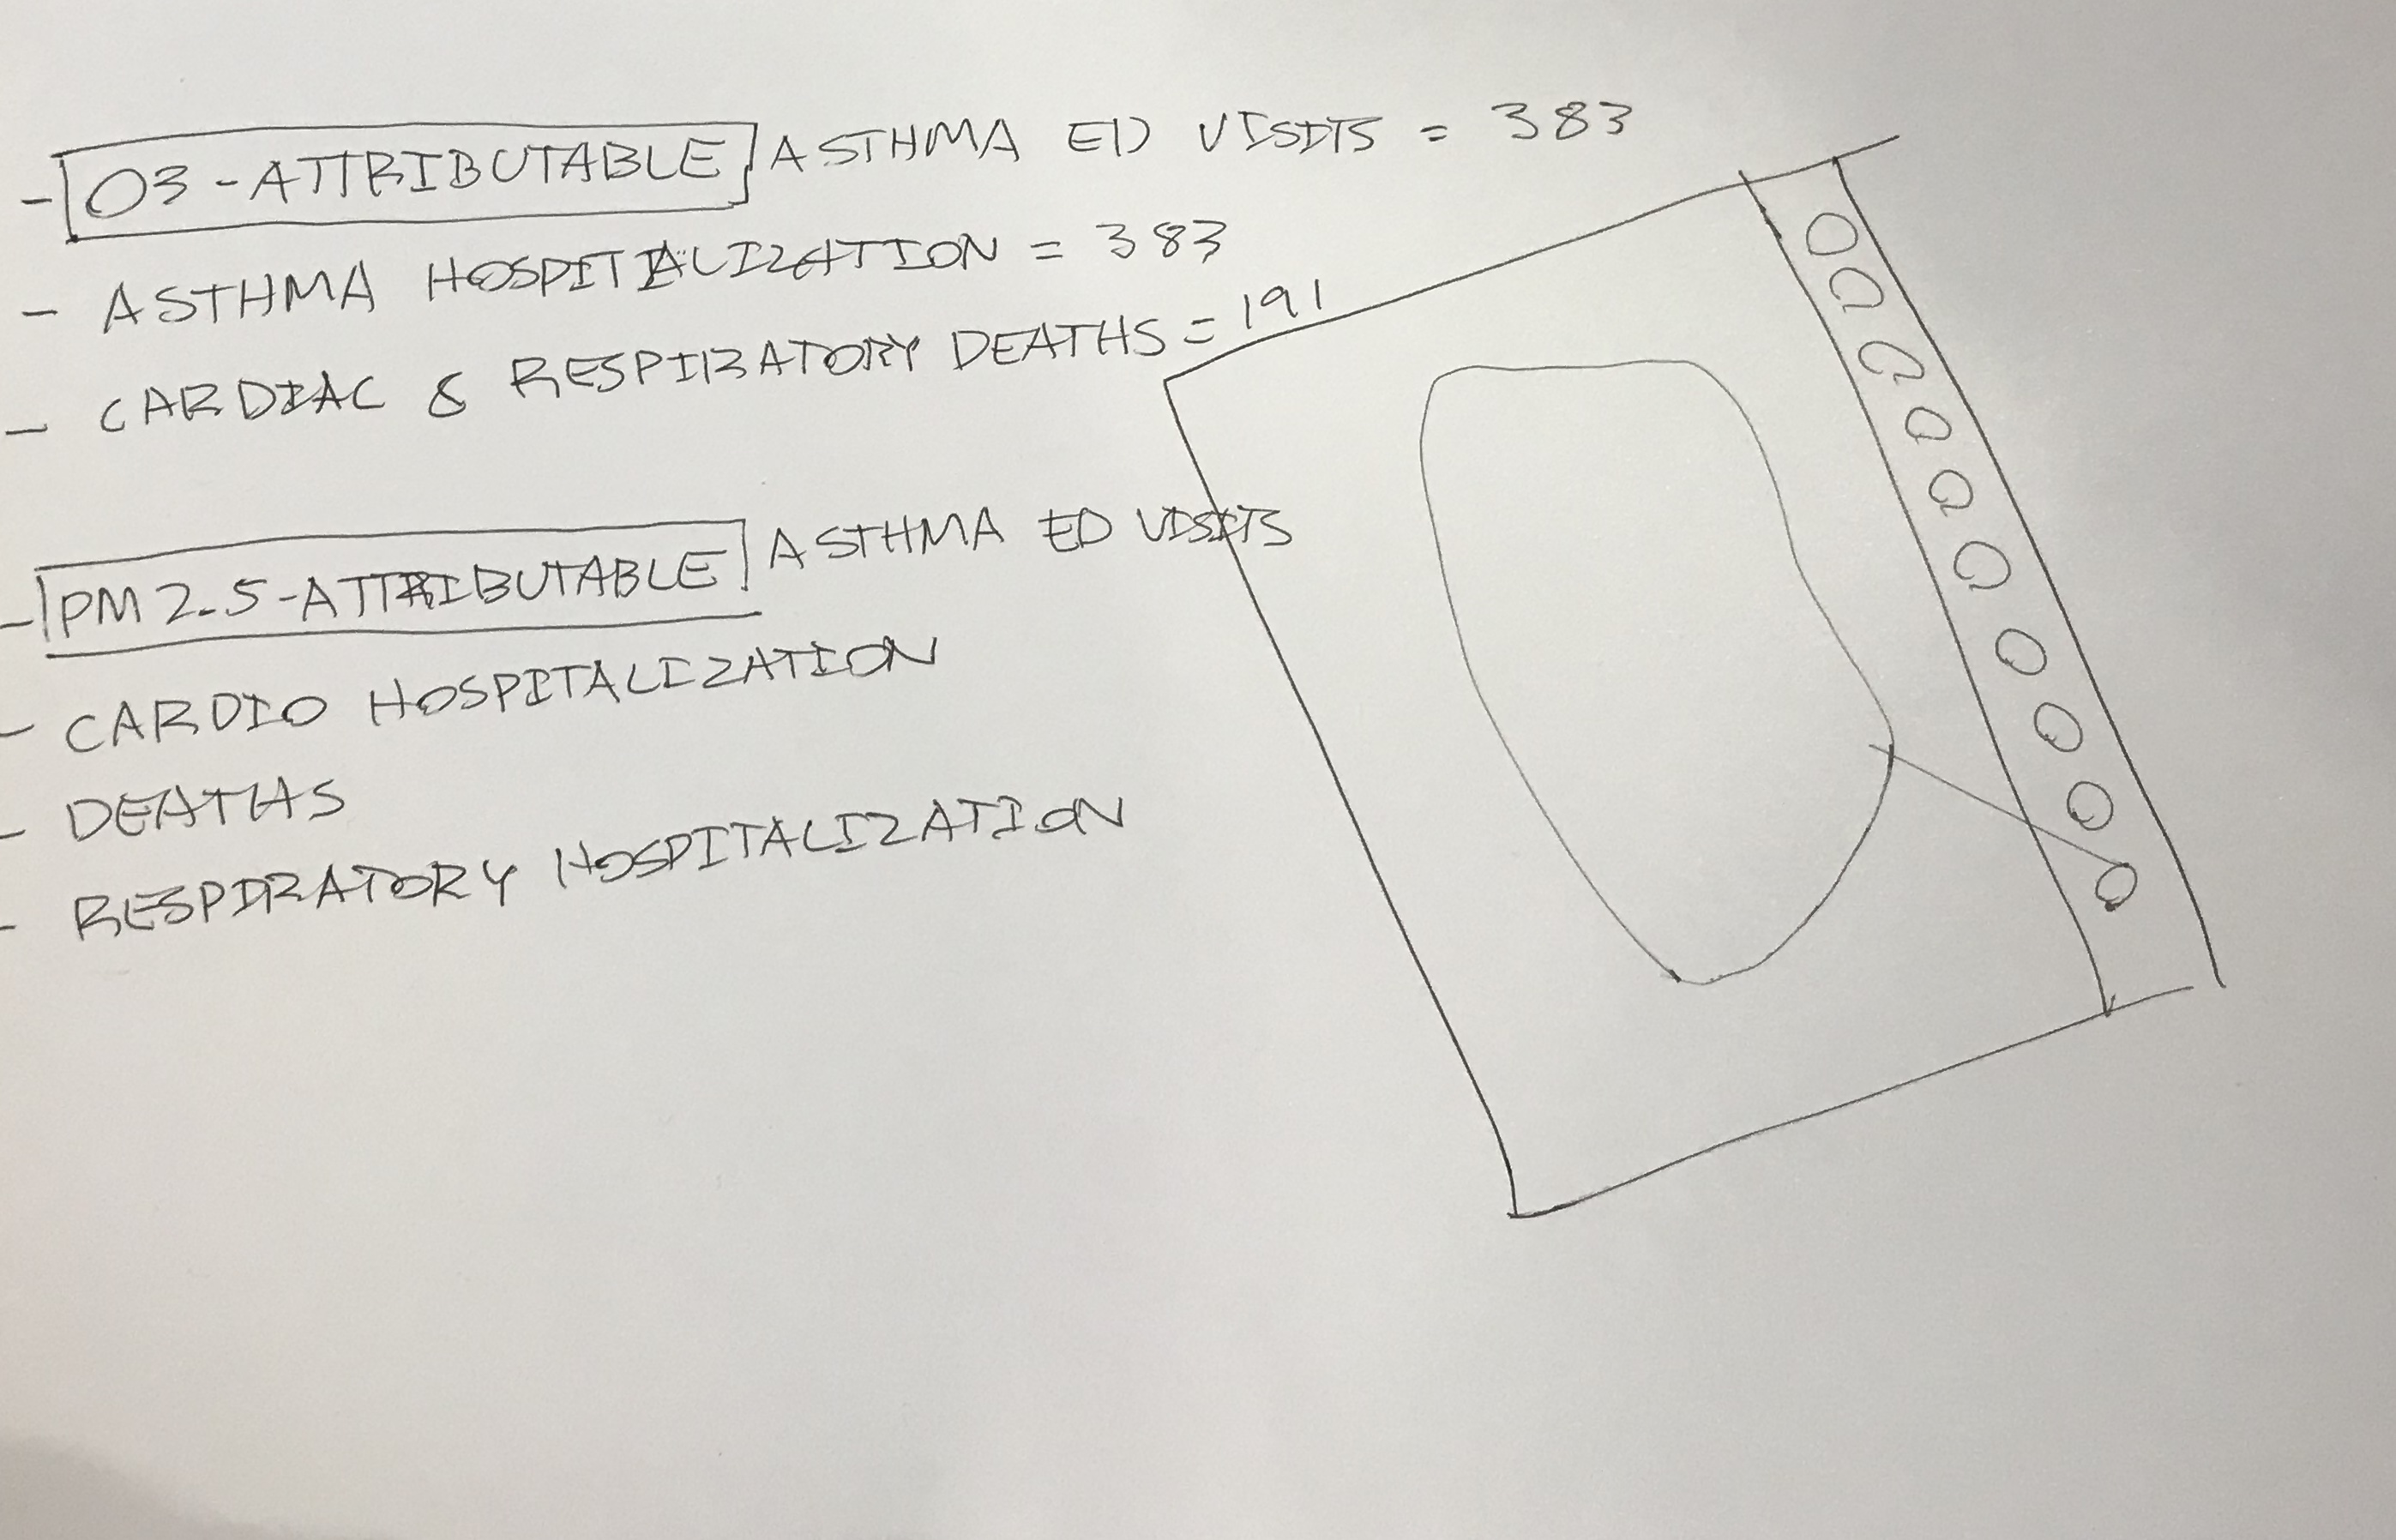 - O3-ATTRIBUTABLE ASTHMA ED VISITS = 383
- ASTHMA HOSPITALIZATION = 383
- CARDIAC & RESPIRATORY DEATHS = 191
- PM2.5-ATTRIBUTABLE ASTHMA ED VISITS
- CARDIO HOSPITALIZATION
- DEATHS
- RESPIRATORY HOSPITALIZATION